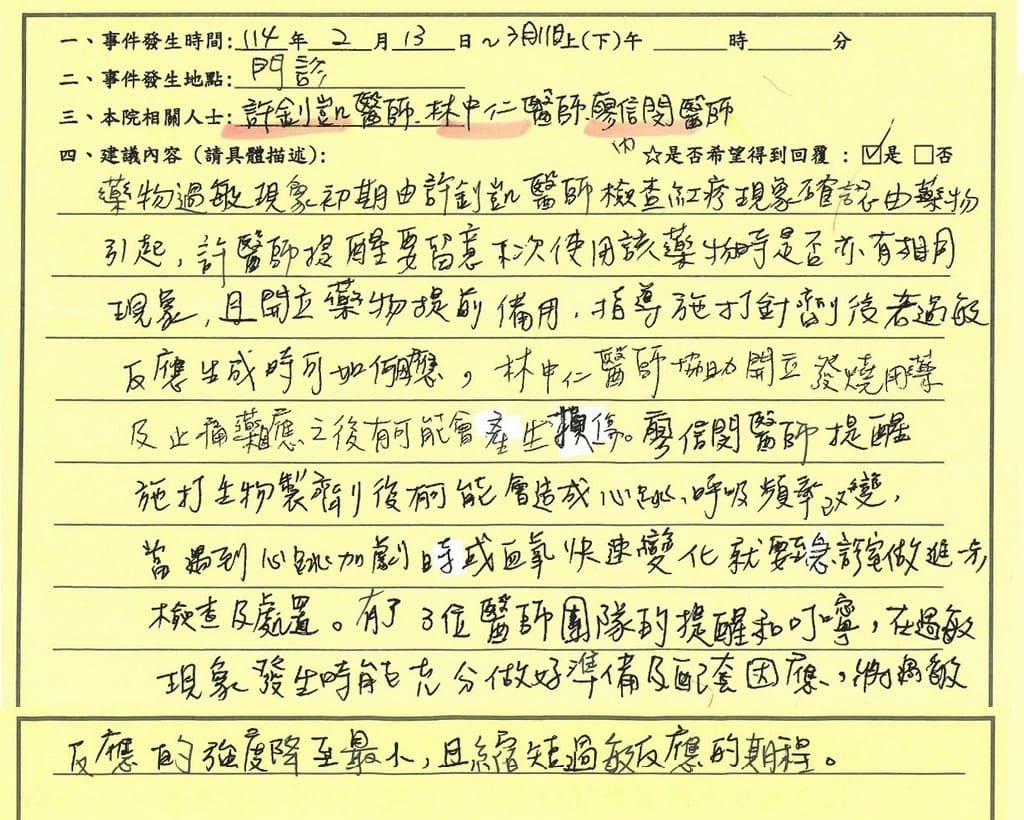 一、事件發生時間：114年 2 月 13 日～3月11日上(下)午 時 分
二、事件發生地點：門診
三、本院相關人士：許釗凱醫師.林中仁醫師.廖信閔醫師
(內)
四、建議內容（請具體描述）： ☆是否希望得到回覆：☑是 □否
藥物過敏現象初期由許釗凱醫師檢查紅疹現象確認由藥物
引起，許醫師提醒要留意下次使用該藥物時是否亦有相同
現象，且開立藥物提前備用，指導施打針劑後若過敏
反應生成時可如何因應，林中仁醫師協助開立發燒用藥
及止痛藥因應之後有可能會產生損傷。廖信閔醫師提醒
施打生物製劑後有可能會造成心跳、呼吸頻率改變，
當遇到心跳加劇時或血氧快速變化就要到急診室做進一步
檢查及處置。有了3位醫師團隊的提醒和叮嚀，在過敏
現象發生時能充分做好準備及配套因應，將過敏
反應的強度降至最小，且縮短過敏反應的期程。